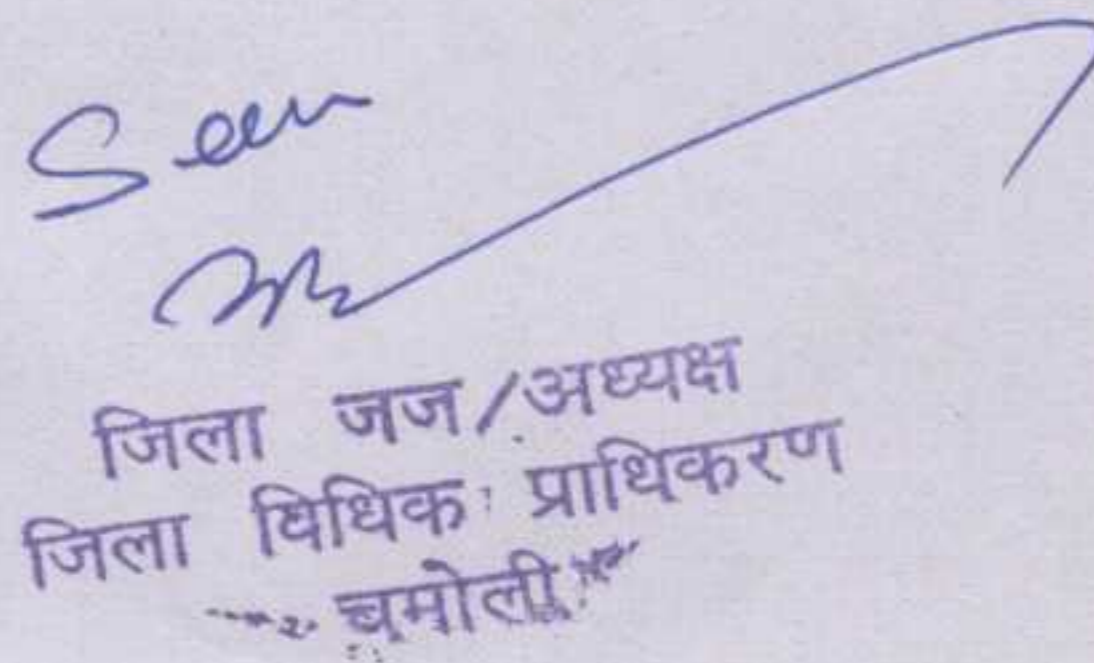 Seen
जिला जज/अध्यक्ष
जिला विधिक प्राधिकरण
चमोली